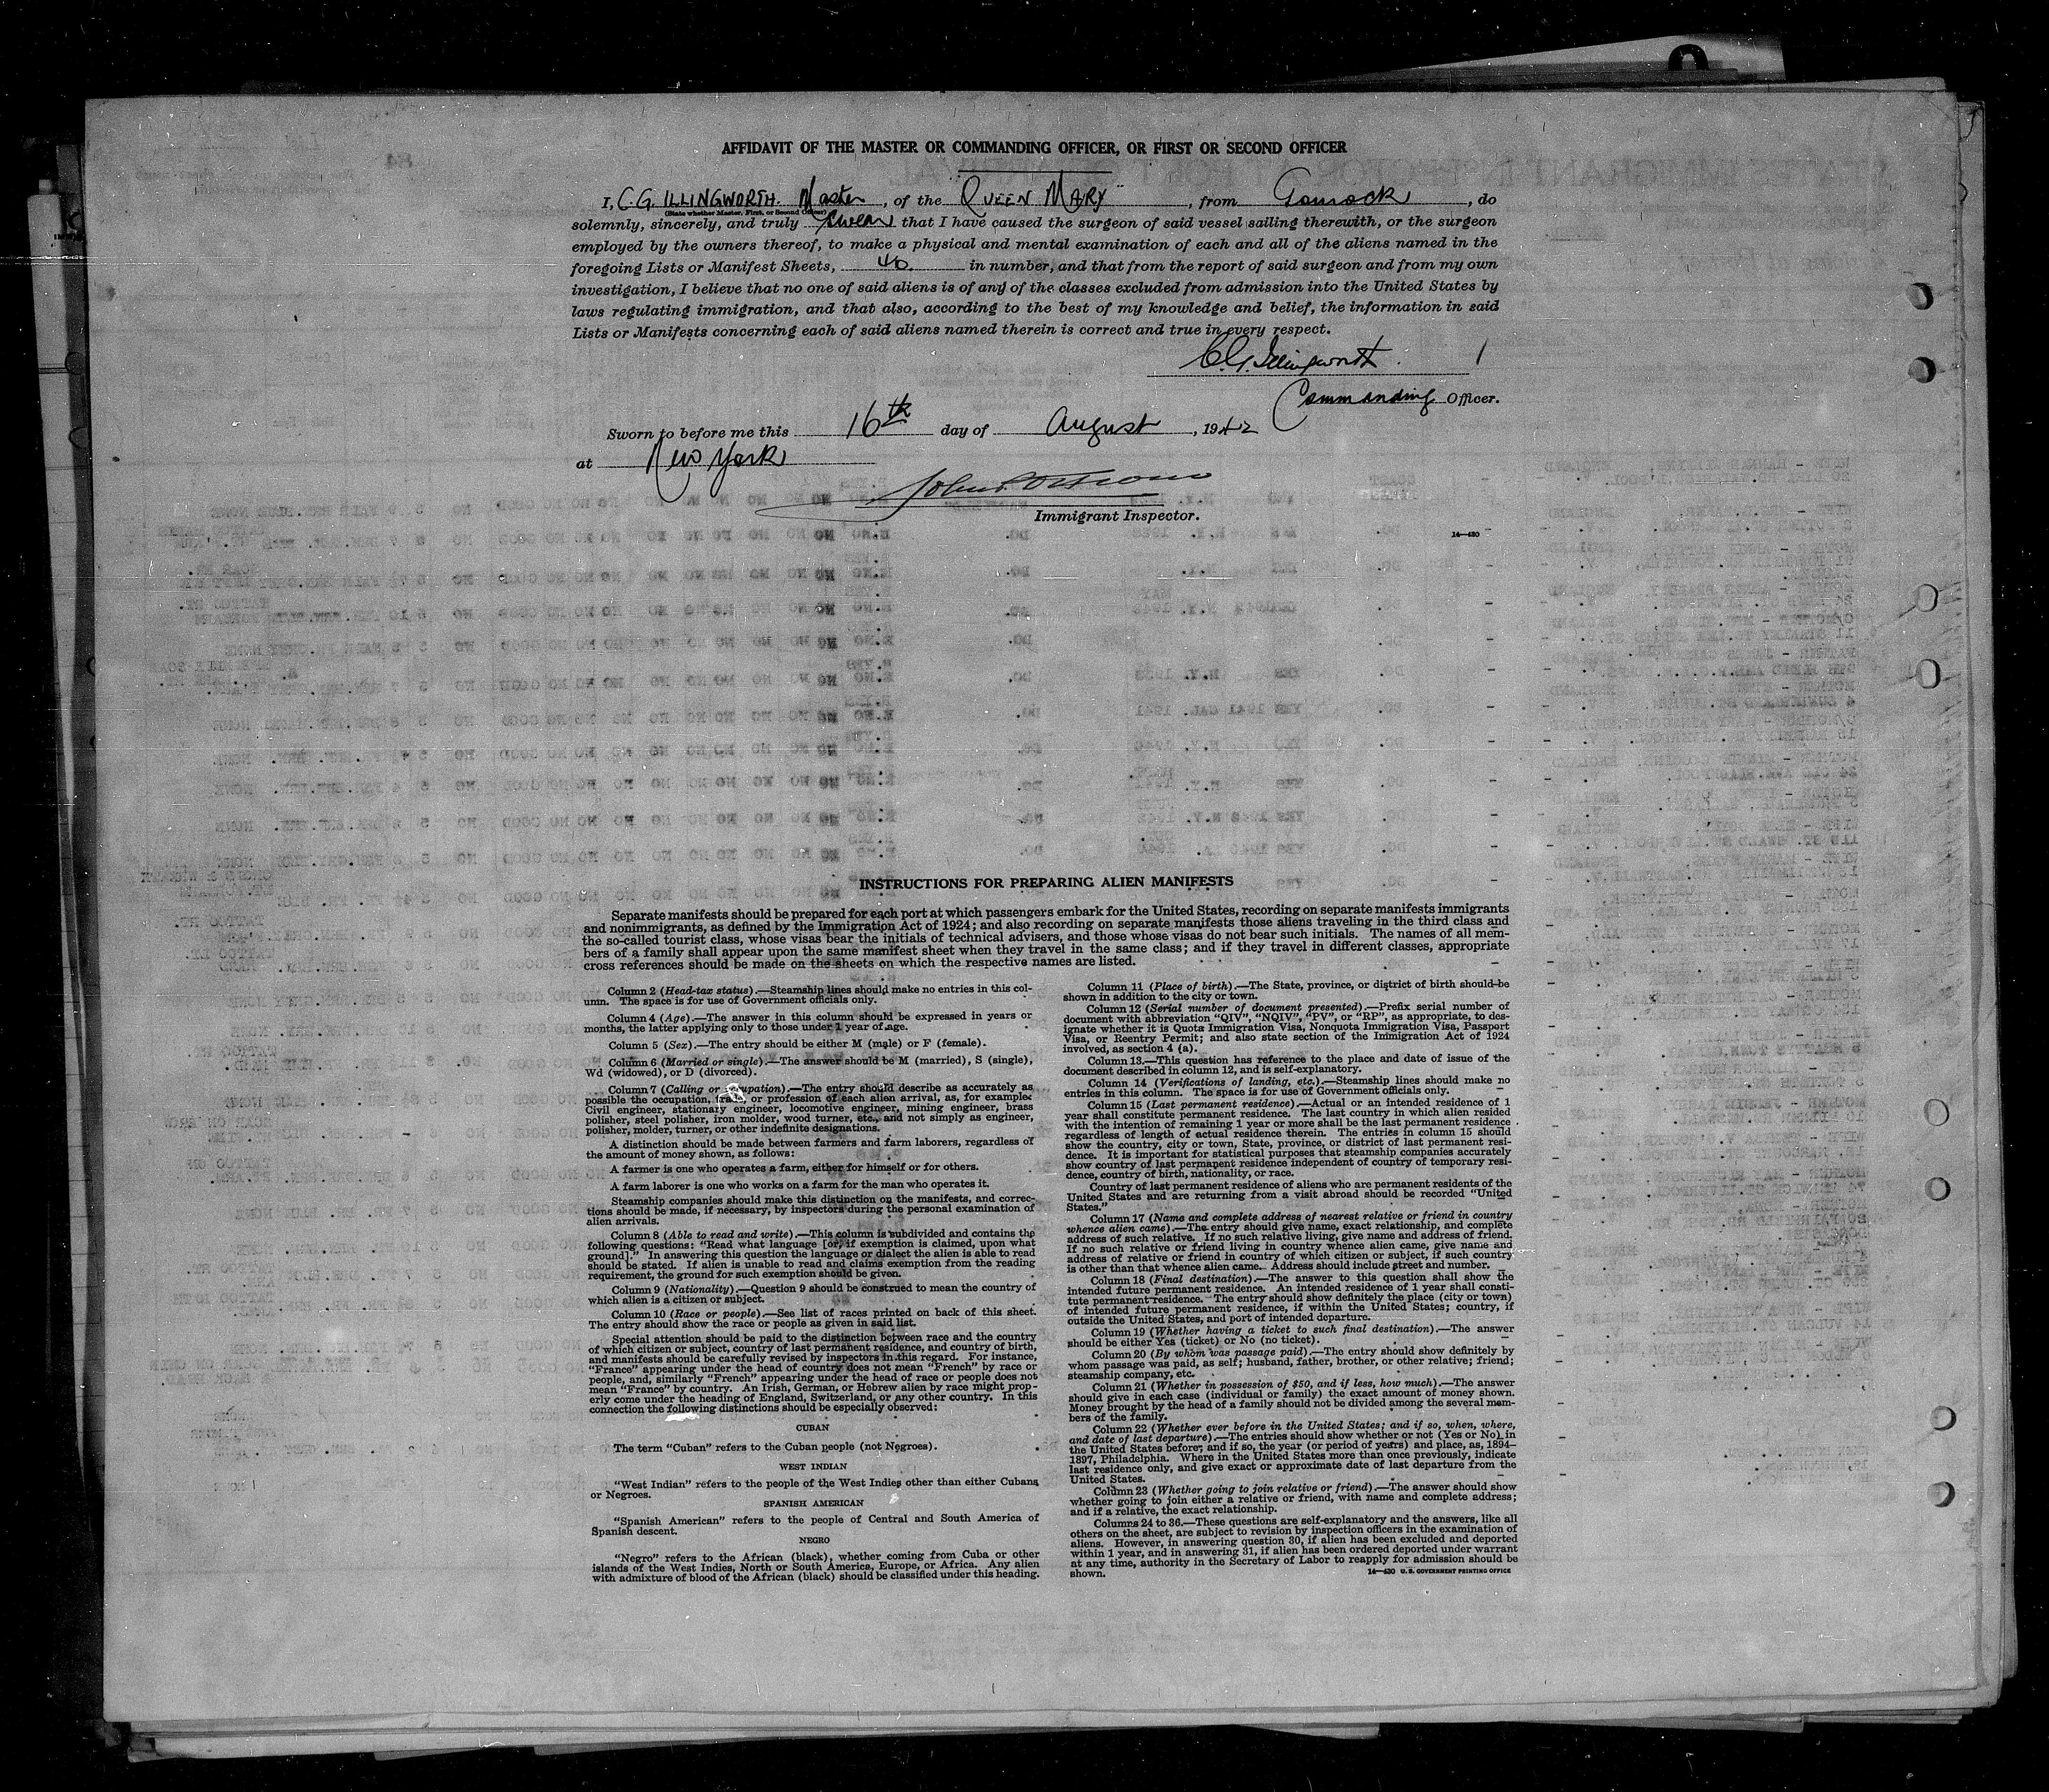 AFFIDAVIT OF THE MASTER OR COMMANDING OFFICER, OR FIRST OR SECOND OFFICER
I, C.G. ILLINGWORTH. Master, of the "QUEEN MARY", from Gourock, do
(State whether Master, First, or Second Officer)
solemnly, sincerely, and truly swear that I have caused the surgeon of said vessel sailing therewith, or the surgeon
employed by the owners thereof, to make a physical and mental examination of each and all of the aliens named in the
foregoing Lists or Manifest Sheets, 40. in number, and that from the report of said surgeon and from my own
investigation, I believe that no one of said aliens is of any of the classes excluded from admission into the United States by
laws regulating immigration, and that also, according to the best of my knowledge and belief, the information in said
Lists or Manifests concerning each of said aliens named therein is correct and true in every respect.
C.G. Illingworth.
Commanding Officer.
Sworn to before me this 16th day of August, 1942
at New York
Immigrant Inspector.
14—430
INSTRUCTIONS FOR PREPARING ALIEN MANIFESTS
Separate manifests should be prepared for each port at which passengers embark for the United States, recording on separate manifests immigrants
and nonimmigrants, as defined by the Immigration Act of 1924; and also recording on separate manifests those aliens traveling in the third class and
the so-called tourist class, whose visas bear the initials of technical advisers, and those whose visas do not bear such initials. The names of all mem-
bers of a family shall appear upon the same manifest sheet when they travel in the same class; and if they travel in different classes, appropriate
cross references should be made on the sheets on which the respective names are listed.
Column 2 (Head-tax status).—Steamship lines should make no entries in this col-
umn. The space is for use of Government officials only.
Column 4 (Age).—The answer in this column should be expressed in years or
months, the latter applying only to those under 1 year of age.
Column 5 (Sex).—The entry should be either M (male) or F (female).
Column 6 (Married or single).—The answer should be M (married), S (single),
Wd (widowed), or D (divorced).
Column 7 (Calling or occupation).—The entry should describe as accurately as
possible the occupation, trade, or profession of each alien arrival, as, for example:
Civil engineer, stationary engineer, locomotive engineer, mining engineer, brass
polisher, steel polisher, iron molder, wood turner, etc., and not simply as engineer,
polisher, molder, turner, or other indefinite designations.
A distinction should be made between farmers and farm laborers, regardless of
the amount of money shown, as follows:
A farmer is one who operates a farm, either for himself or for others.
A farm laborer is one who works on a farm for the man who operates it.
Steamship companies should make this distinction on the manifests, and correc-
tions should be made, if necessary, by inspectors during the personal examination of
alien arrivals.
Column 8 (Able to read and write).—This column is subdivided and contains the
following questions: "Read what language [or, if exemption is claimed, upon what
ground]." In answering this question the language or dialect the alien is able to read
should be stated. If alien is unable to read and claims exemption from the reading
requirement, the ground for such exemption should be given.
Column 9 (Nationality).—Question 9 should be construed to mean the country of
which alien is a citizen or subject.
Column 10 (Race or people).—See list of races printed on back of this sheet.
The entry should show the race or people as given in said list.
Special attention should be paid to the distinction between race and the country
of which citizen or subject, country of last permanent residence, and country of birth,
and manifests should be carefully revised by inspectors in this regard. For instance,
"France" appearing under the head of country does not mean "French" by race or
people, and, similarly "French" appearing under the head of race or people does not
mean "France" by country. An Irish, German, or Hebrew alien by race might prop-
erly come under the heading of England, Switzerland, or any other country. In this
connection the following distinctions should be especially observed:
CUBAN
The term "Cuban" refers to the Cuban people (not Negroes).
WEST INDIAN
"West Indian" refers to the people of the West Indies other than either Cubans
or Negroes.
SPANISH AMERICAN
"Spanish American" refers to the people of Central and South America of
Spanish descent.
NEGRO
"Negro" refers to the African (black), whether coming from Cuba or other
islands of the West Indies, North or South America, Europe, or Africa. Any alien
with admixture of blood of the African (black) should be classified under this heading.
Column 11 (Place of birth).—The State, province, or district of birth should be
shown in addition to the city or town.
Column 12 (Serial number of document presented).—Prefix serial number of
document with abbreviation "QIV", "NQIV", "PV", or "RP", as appropriate, to des-
ignate whether it is Quota Immigration Visa, Nonquota Immigration Visa, Passport
Visa, or Reentry Permit; and also state section of the Immigration Act of 1924
involved, as section 4 (a).
Column 13.—This question has reference to the place and date of issue of the
document described in column 12, and is self-explanatory.
Column 14 (Verifications of landing, etc.).—Steamship lines should make no
entries in this column. The space is for use of Government officials only.
Column 15 (Last permanent residence).—Actual or an intended residence of 1
year shall constitute permanent residence. The last country in which alien resided
with the intention of remaining 1 year or more shall be the last permanent residence
regardless of length of actual residence therein. The entries in column 15 should
show the country, city or town, State, province, or district of last permanent resi-
dence. It is important for statistical purposes that steamship companies accurately
show country of last permanent residence independent of country of temporary resi-
dence, country of birth, nationality, or race.
Country of last permanent residence of aliens who are permanent residents of the
United States and are returning from a visit abroad should be recorded "United
States."
Column 17 (Name and complete address of nearest relative or friend in country
whence alien came).—The entry should give name, exact relationship, and complete
address of such relative. If no such relative living, give name and address of friend.
If no such relative or friend living in country whence alien came, give name and
address of relative or friend in country of which citizen or subject, if such country
is other than that whence alien came. Address should include street and number.
Column 18 (Final destination).—The answer to this question shall show the
intended future permanent residence. An intended residence of 1 year shall consti-
tute permanent residence. The entry should show definitely the place (city or town)
of intended future permanent residence, if within the United States; country, if
outside the United States, and port of intended departure.
Column 19 (Whether having a ticket to such final destination).—The answer
should be either Yes (ticket) or No (no ticket).
Column 20 (By whom was passage paid).—The entry should show definitely by
whom passage was paid, as self; husband, father, brother, or other relative; friend;
steamship company, etc.
Column 21 (Whether in possession of $50, and if less, how much).—The answer
should give in each case (individual or family) the exact amount of money shown.
Money brought by the head of a family should not be divided among the several mem-
bers of the family.
Column 22 (Whether ever before in the United States; and if so, when, where,
and date of last departure).—The entries should show whether or not (Yes or No) in
the United States before; and if so, the year (or period of years) and place, as, 1894–
1897, Philadelphia. Where in the United States more than once previously, indicate
last residence only, and give exact or approximate date of last departure from the
United States.
Column 23 (Whether going to join relative or friend).—The answer should show
whether going to join either a relative or friend, with name and complete address;
and if a relative, the exact relationship.
Columns 24 to 36.—These questions are self-explanatory and the answers, like all
others on the sheet, are subject to revision by inspection officers in the examination of
aliens. However, in answering question 30, if alien has been excluded and deported
within 1 year, and in answering 31, if alien has been ordered deported under warrant
at any time, authority in the Secretary of Labor to reapply for admission should be
shown.
14—430 U. S. GOVERNMENT PRINTING OFFICE